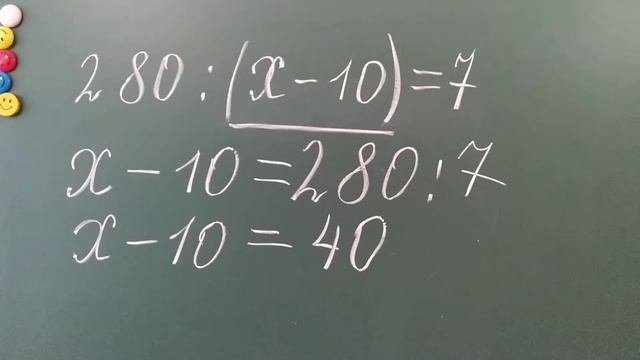 280:(x-10)=7
x-10=280:7
x-10=40